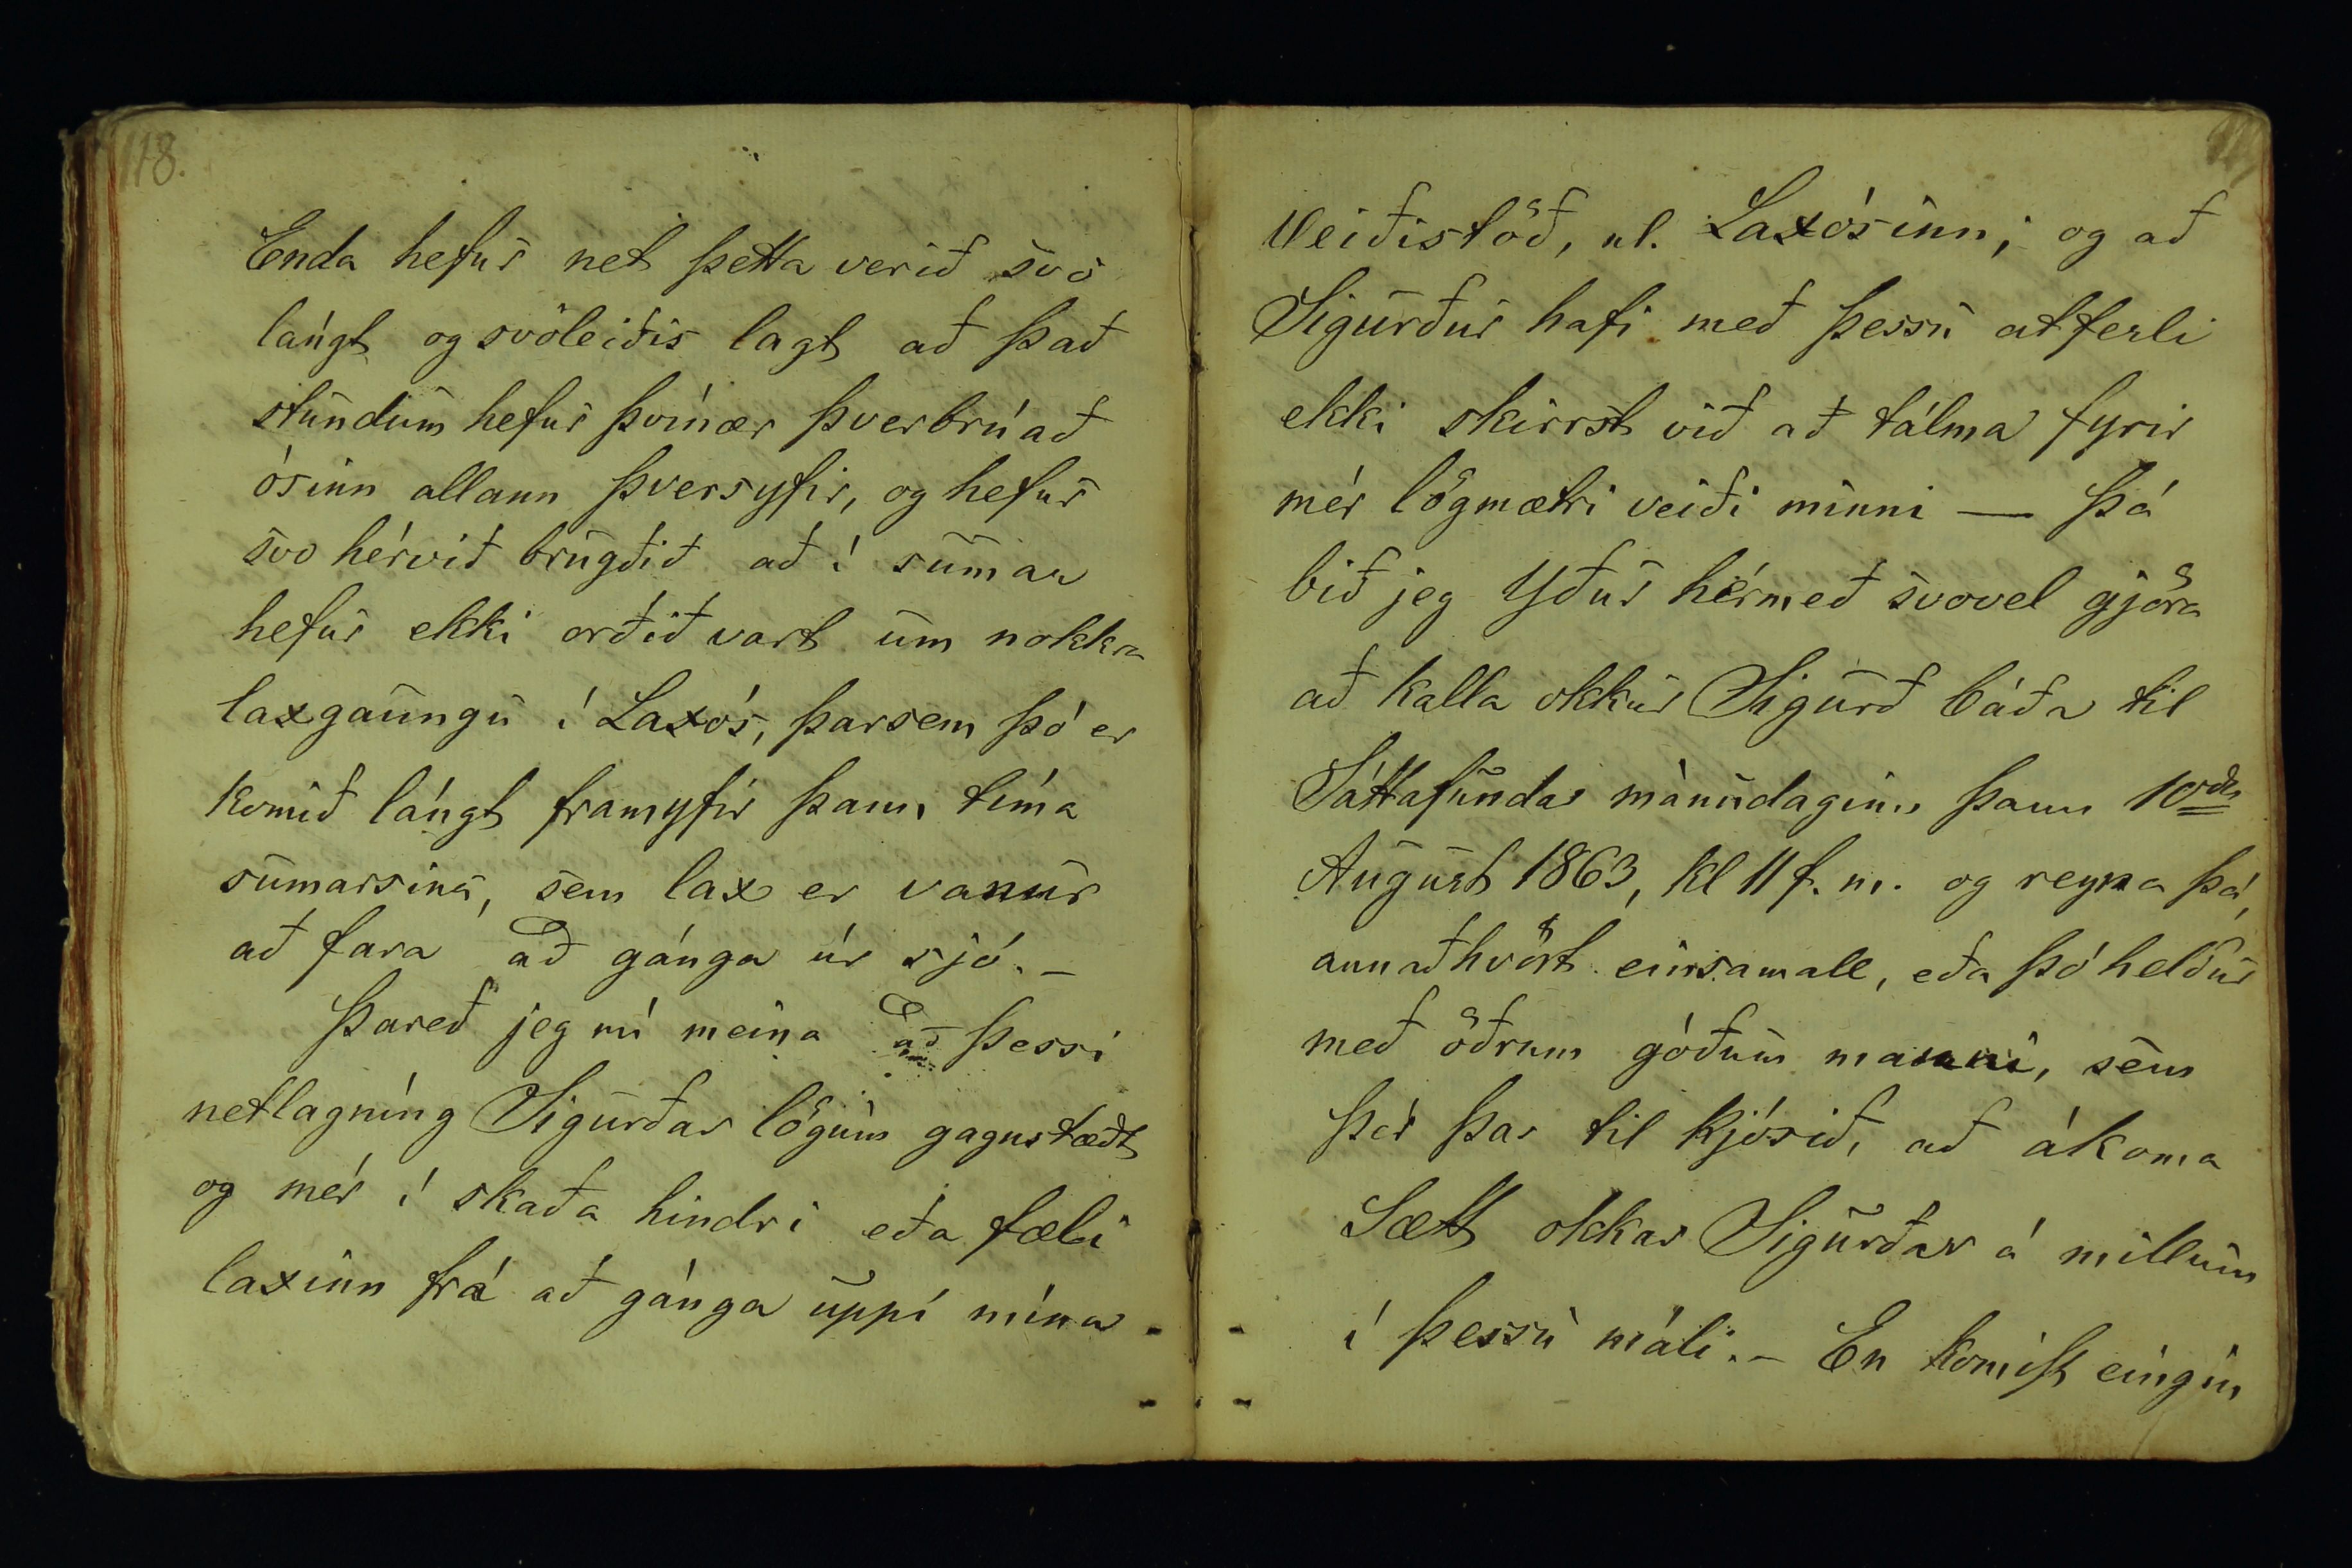 118.
Enda hefur net þetta verið svo
lángt og svoleiðis lagt að það
stundum hefur þvínær þverbrúað
ósinn allann þversyfir, og hefur
svo hérvið brugðið að í sumar
hefur ekki orðið vart um nokkra
laxgaungu í Laxós, þarsem þó er
komið lángt framyfir þann tíma
sumarsins, sem lax er vanur
að fara að gánga úr sjó. –
Þareð jeg nú meina að þessi
netlagníng Sigurðar lögum gagnstædt
og mér í skaða hindri eða fæli
laxinn frá að gánga uppí mína
Veiðistöð, nl. Laxósinn; og að
Sigurður hafi með þessu atferli
ekki skirrst við að tálma fyrir
mér lögmætri veiði minni — Þá
bið jeg Yður hérmeð svovel gjöra
að kalla okkur Sigurð báða til
Sáttafundar mánudaginn þann 10da
August 1863, kl 11 f. m. og reyna þá,
annaðhvört einsamall, eða þó heldur
með öðrum góðum manni, sem
þér þar til kjósið, að ákoma
Sætt okkar Sigurðar á millum
í þessu máli. – En komist eingin